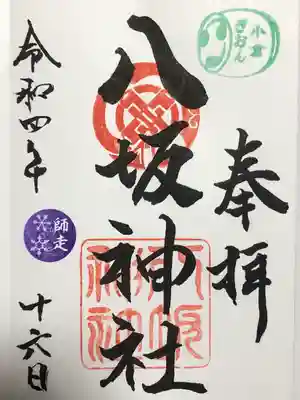 小倉
ぎおん
奉拝
八坂神社
八坂
神社
令和四年
師走
十六日